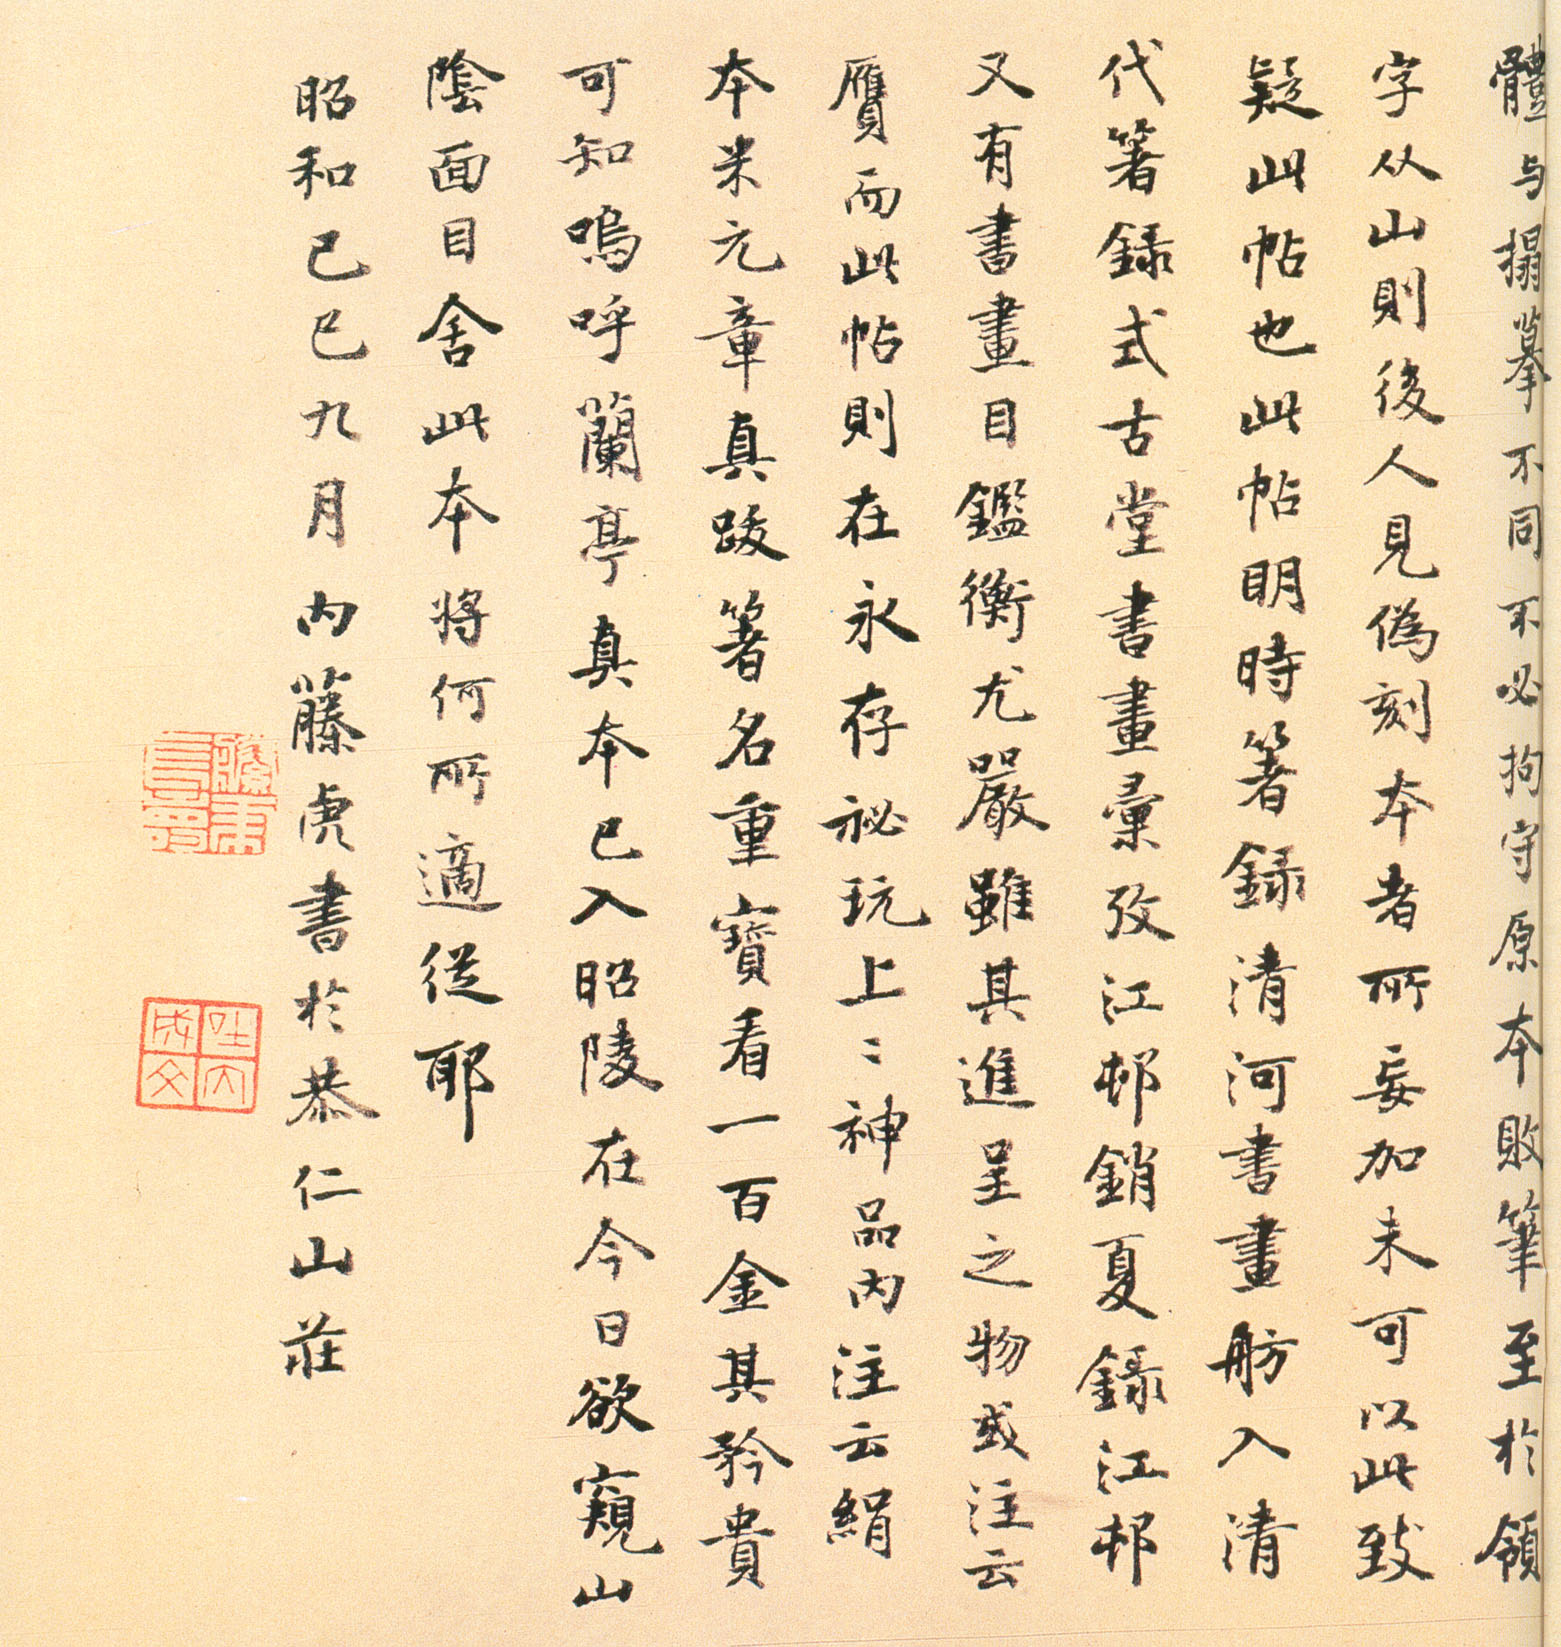 體与搨摹不同不必拘守原本敗筆至於領
字从山則後人見偽刻本者所妄加未可以此致
疑此帖也此帖明時箸録清河書畫舫入清
代箸録式古堂書畫彙攷江邨銷夏録江邨
又有書畫目鑑衡尤嚴雖其進呈之物或注云
贗而此帖則在永存祕玩上〻神品内注云絹
本米元章真跋箸名重寶看一百金其矜貴
可知嗚呼蘭亭真本已入昭陵在今日欲窺山
陰面目舍此本將何所適從耶
昭和己巳九月内藤虎書於恭仁山莊
吐內成文